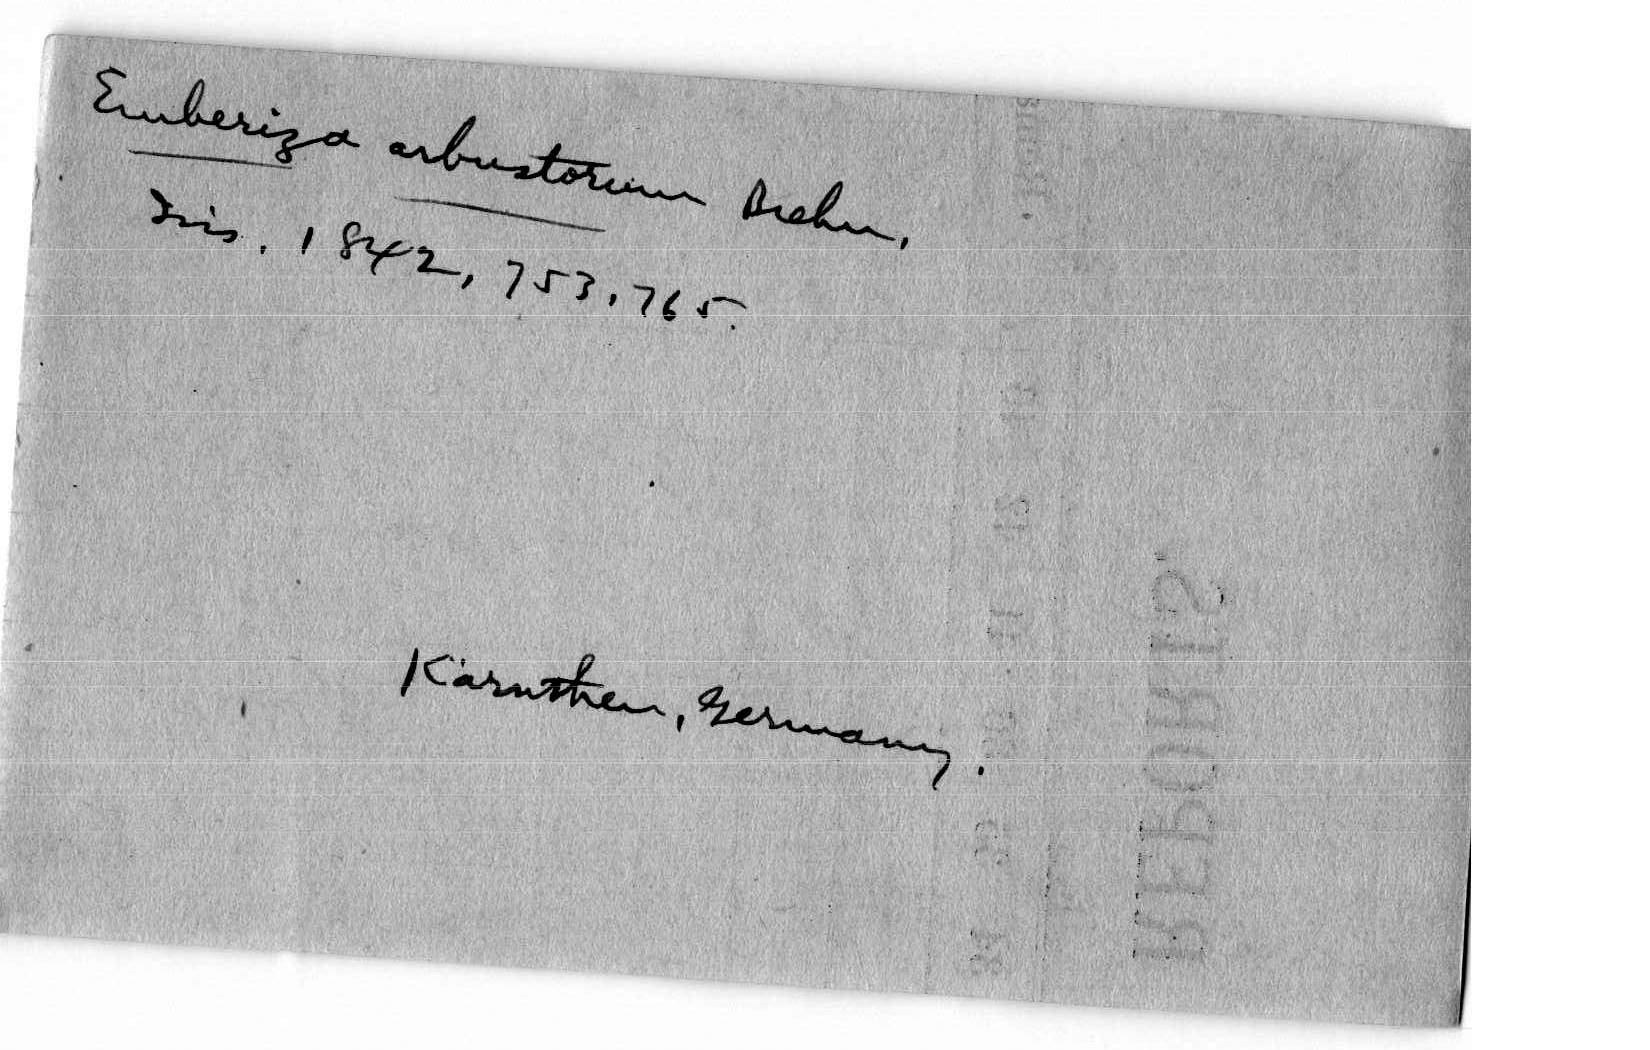 Emberiza arbustorum Brehm,
Isis. 1842, 753, 765.
Kärnthen, Germany.
REPORTS